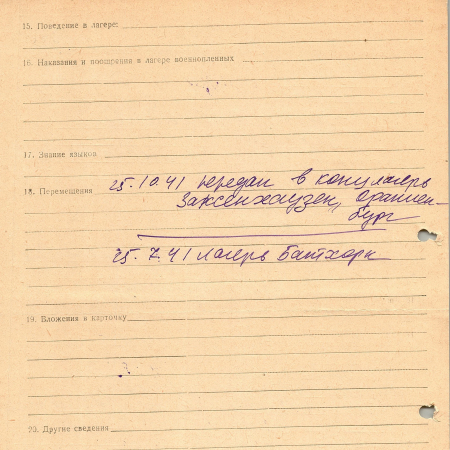 15. Поведение в лагере:
16. Наказания и поощрения в лагере военнопленных
17. Знание языков
25.10.41 передан в концлагерь
18. Перемещения
Заксенхаузен, Ораниен-
бург
25.7.41 лагерь Батхорн
19. Вложения в карточку
20. Другие сведения